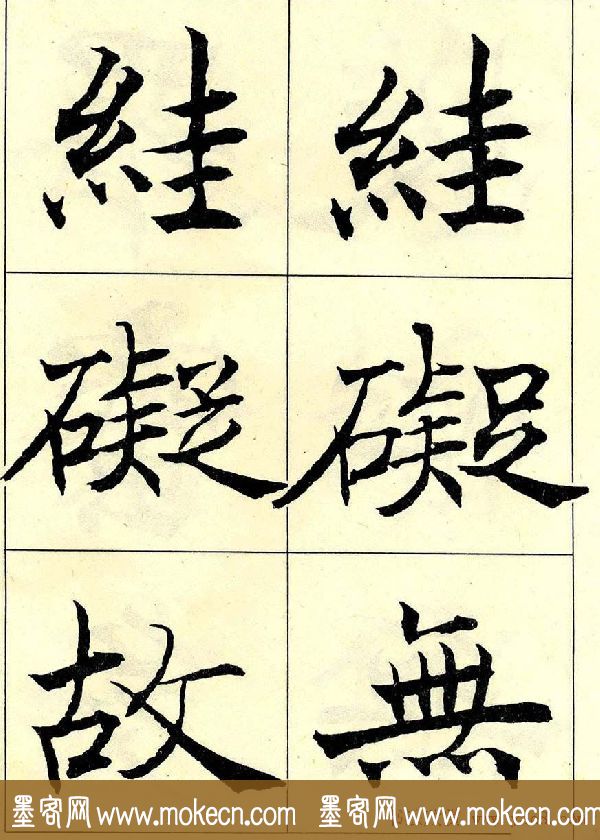 絓礙無
絓礙故
墨客网 www.mokecn.com 墨客网 www.mokecn.com